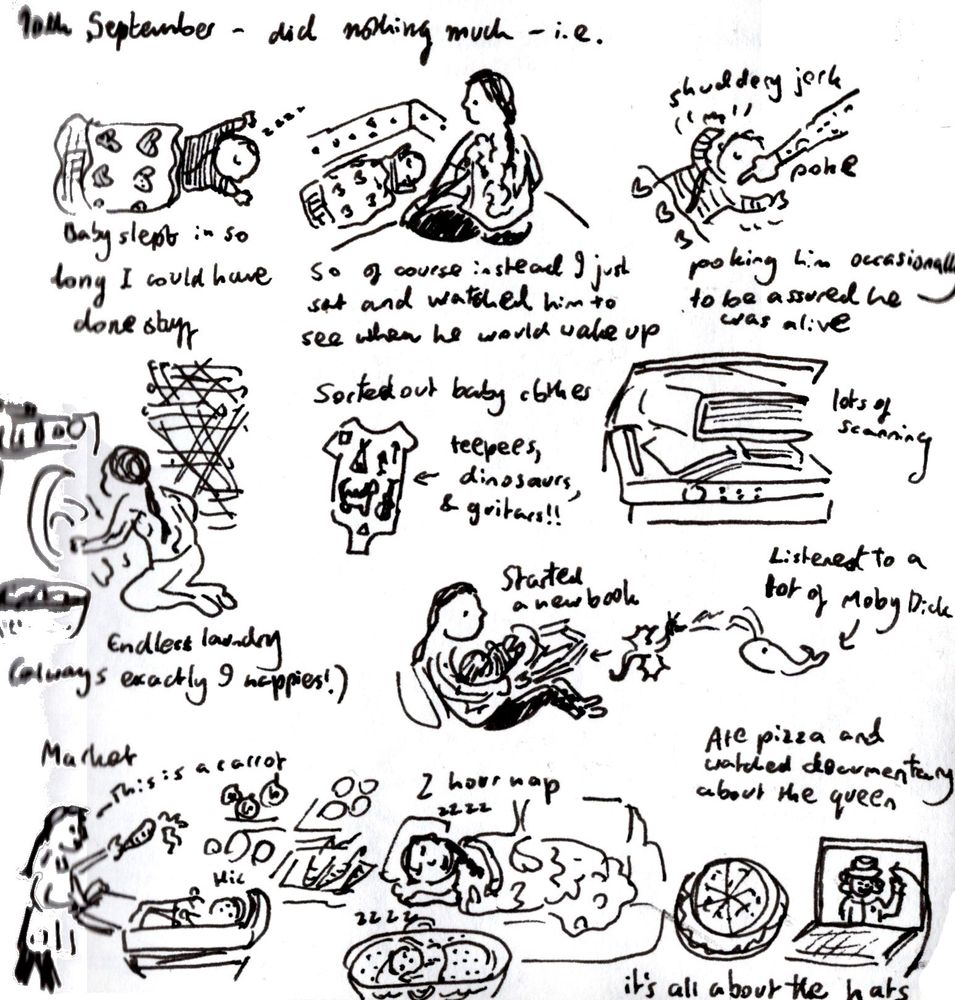 10th September - did nothing much - i.e.
zzzz
Baby slept in so
long I could have
done stuff
So of course instead I just
sat and watched him to
see when he would wake up
shuddery jerk
poke
poking him occasionally
to be assured he
was alive
Endless laundry
(always exactly 9 nappies!)
Sorted out baby clothes
teepees,
dinosaurs,
& guitars!!
lots of
scanning
Started
a new book
Listened to a
lot of Moby Dick
Market
This is a carrot
Hic
2 hour nap
zzzz
zzzz
Ate pizza and
watched documentary
about the queen
it's all about the hats